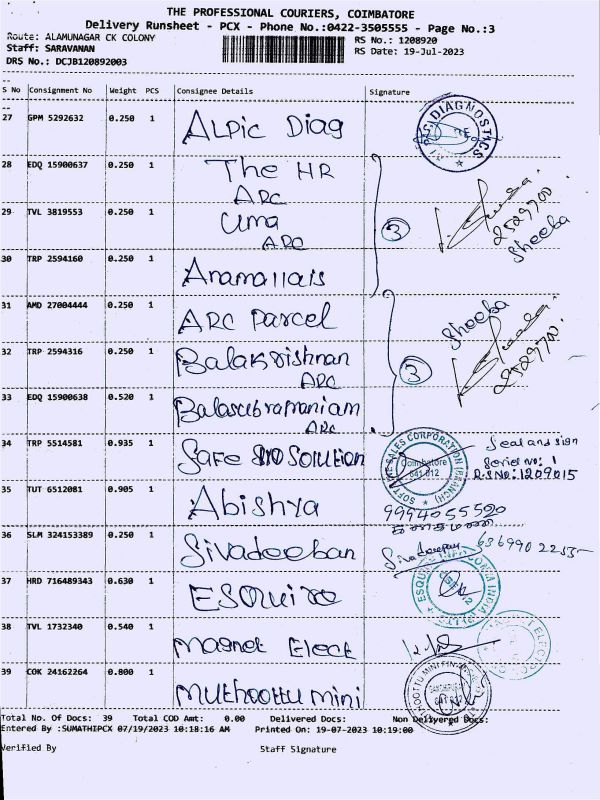 THE PROFESSIONAL COURIERS, COIMBATORE
Delivery Runsheet - PCX - Phone No.:0422-3505555 - Page No.:3
Route: ALAMUNAGAR CK COLONY RS No.: 1208920
Staff: SARAVANAN RS Date: 19-Jul-2023
DRS No.: DCJB120892003
S No Consignment No Weight PCS Consignee Details Signature
27 GPM 5292632 0.250 1 ALPIC Diag DIAGNOSTICS
28 EDQ 15900637 0.250 1 The HR
ARC
29 TVL 3819553 0.250 1 Uma 3 2529700
ARC Sheeba
30 TRP 2594160 0.250 1 Anamallais
31 AMD 27004444 0.250 1 ARC Parcel Sheeba
32 TRP 2594316 0.250 1 Balakrishnan 3 2529700
ARC
33 EDQ 15900638 0.520 1 Balasubramaniam
ARC
34 TRP 5514581 0.935 1 Safe Solution SOFTWARE SALES CORPORATION (BRANCH) Coimbatore 641 012 Seal and sign
Serial no: 1
D.S No: 1209015
35 TUT 6512081 0.905 1 Abishya 9994055520
36 SLM 324153389 0.250 1 Sivadeeban
37 HRD 716489343 0.630 1 ESQuire ESQUIRE
38 TVL 1732340 0.540 1 Magnet Elect
39 COK 24162264 0.800 1 Muthoottu mini MUTHOOTTU MINI
Total No. Of Docs: 39 Total COD Amt: 0.00 Delivered Docs: Non Delivered Docs:
Entered By :SUMATHIPCX 07/19/2023 10:18:16 AM Printed On: 19-07-2023 10:19:00
Verified By Staff Signature